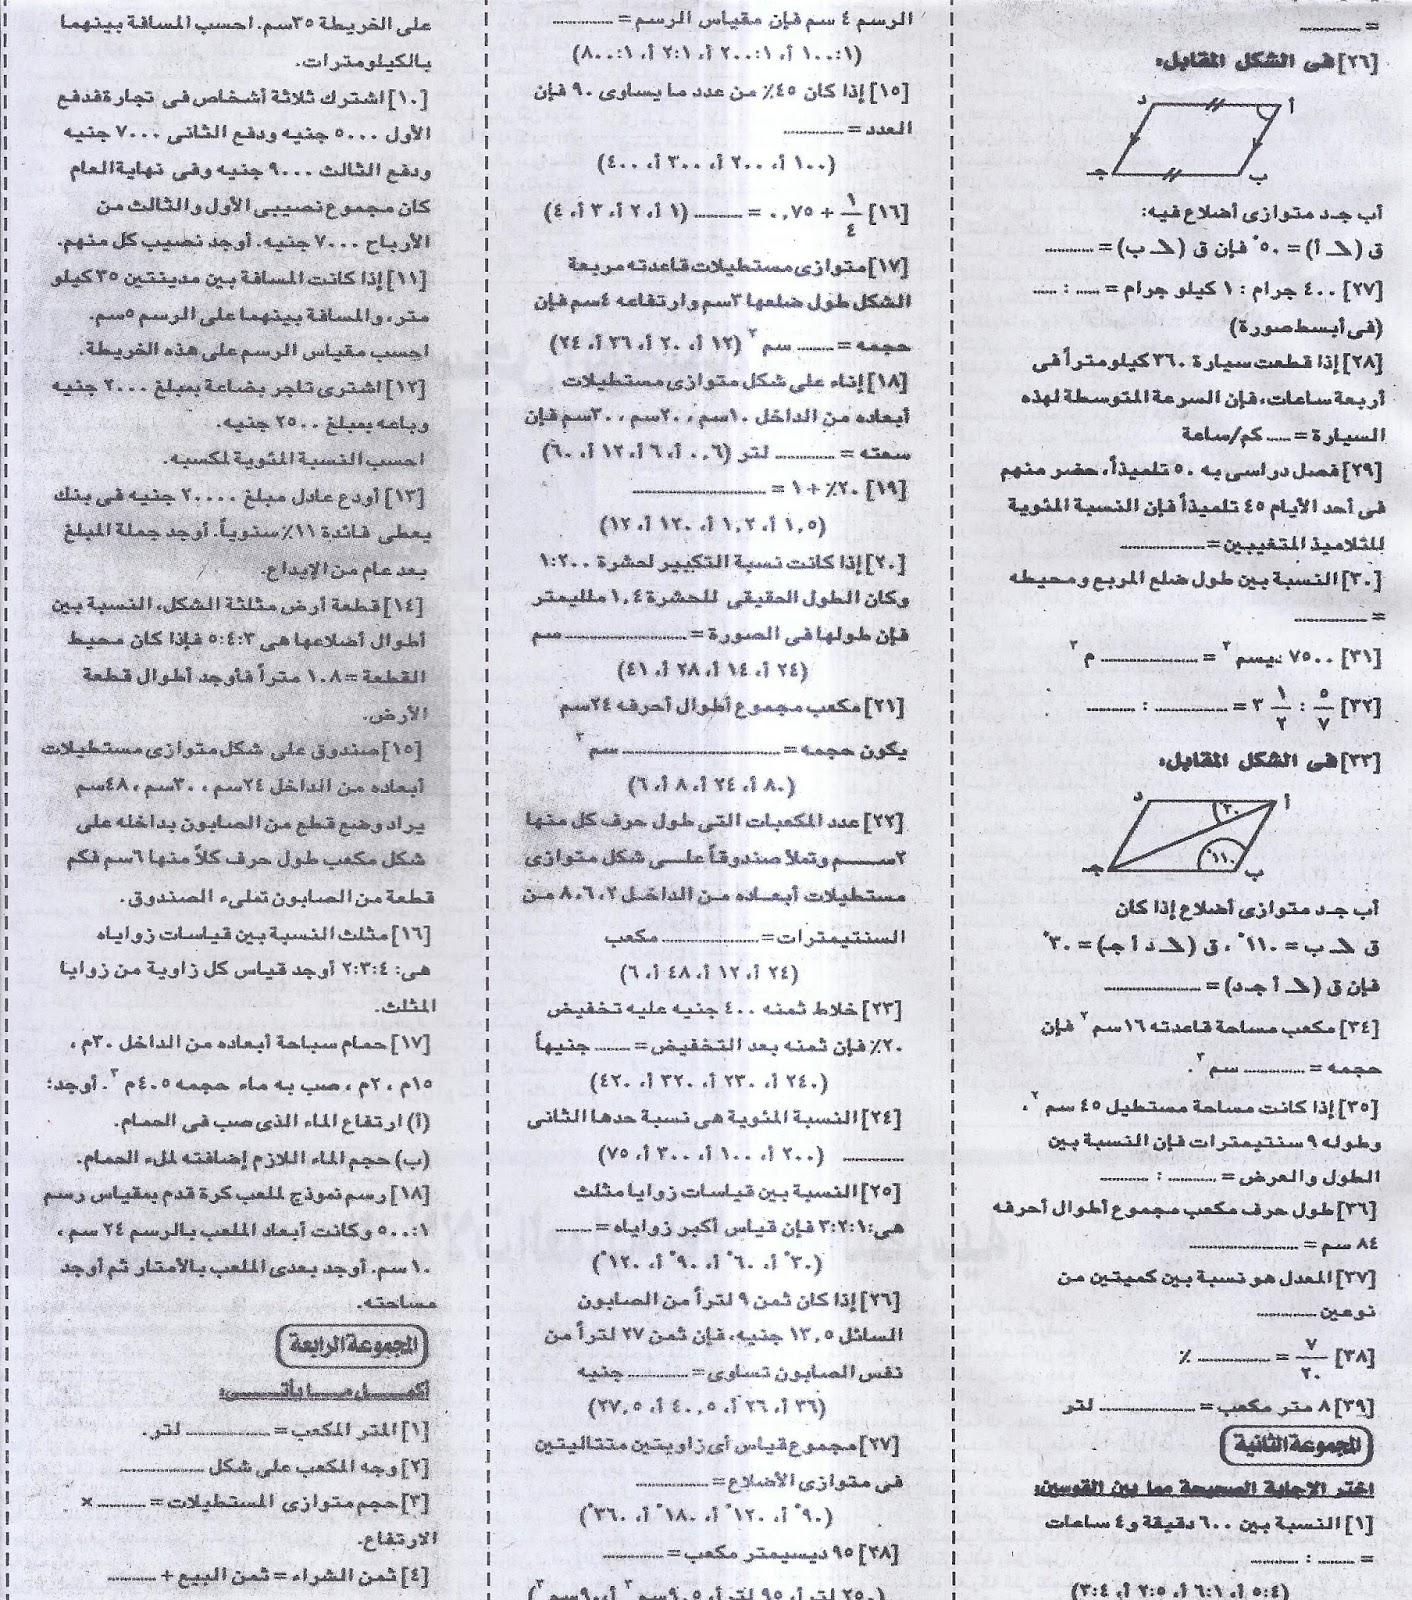 = ............
[٢٦] فى الشكل المقابل:
أ
د
ب
جـ
أب جـ د متوازى أضلاع فيه:
ق (ﮮ أ) = ٥٠ ْ فإن ق (ﮮ ب) = ..........
[٢٧] ٤٠٠ جرام : ١ كيلو جرام = ..... : .....
(فى أبسط صورة)
[٢٨] إذا قطعت سيارة ٣٦٠ كيلومتراً فى
أربعة ساعات، فإن السرعة المتوسطة لهذه
السيارة = ..... كم/ساعة
[٢٩] فصل دراسى به ٥٠ تلميذاً، حضر منهم
فى أحد الأيام ٤٥ تلميذاً فإن النسبة المئوية
للتلاميذ المتغيبين = ................
[٣٠] النسبة بين طول ضلع المربع ومحيطه
= ..............
[٣١] ٧٥٠٠ ديسم ٣ = ................ م ٣
[٣٢] ٥/٧ : ٣ ١/٢ = ............ : ..........
[٣٣] فى الشكل المقابل:
أ
د
٣٠
١١٠ ْ
ب
جـ
أب جـ د متوازى أضلاع إذا كان
ق ﮮ ب = ١١٠ ْ ، ق (ﮮ د أ جـ) = ٣٠ ْ
فإن ق (ﮮ أ جـ د) = ................
[٣٤] مكعب مساحة قاعدته ١٦ سم ٢ فإن
حجمه = ............ سم ٣ .
[٣٥] إذا كانت مساحة مستطيل ٤٥ سم ٢ ،
وطوله ٩ سنتيمترات فإن النسبة بين
الطول والعرض = .......... : ..........
[٣٦] طول حرف مكعب مجموع أطوال أحرفه
٨٤ سم = ................
[٣٧] المعدل هو نسبة بين كميتين من
نوعين ............
[٣٨] ٧/٢٠ = .............. ٪
[٣٩] ٨ متر مكعب = ................ لتر
المجموعة الثانية
اختر الإجابة الصحيحة مما بين القوسين:
[١] النسبة بين ٦٠٠ دقيقة و٤ ساعات
= .......... : ..........
(٥:٤ أ، ٦:١ أ، ٢:٥ أ، ٣:٤)
الرسم ٤ سم فإن مقياس الرسم = ............
(١٠٠:١ أ، ٢٠٠:١ أ، ٢:١ أ، ٨٠٠:١)
[١٥] إذا كان ٤٥٪ من عدد ما يساوى ٩٠ فإن
العدد = ............
(١٠٠ أ، ٢٠٠ أ، ٣٠٠ أ، ٤٠٠)
[١٦] ١/٤ + ٠,٧٥ = ........ (١ أ، ٢ أ، ٣ أ، ٤)
[١٧] متوازى مستطيلات قاعدته مربعة
الشكل طول ضلعها ٣سم وارتفاعه ٤سم فإن
حجمه = ...... سم ٣ (١٢ أ، ٢٠ أ، ٣٦ أ، ٢٤)
[١٨] إناء على شكل متوازى مستطيلات
أبعاده من الداخل ١٠سم ، ٢٠سم ، ٣٠سم فإن
سعته = .......... لتر (٠,٦ أ، ٦ أ، ١٢ أ، ٦٠)
[١٩] ٢٠٪ + ١ = ......................
(١,٥ أ، ١,٢ أ، ١٢٠ أ، ١٢)
[٢٠] إذا كانت نسبة التكبير لحشرة ٢٠٠:١
وكان الطول الحقيقى للحشرة ١,٤ ملليمتر
فإن طولها فى الصورة = .................. سم
(٢٤ أ، ١٤ أ، ٢٨ أ، ٤١)
[٢١] مكعب مجموع أطوال أحرفه ٢٤سم
يكون حجمه = ...................... سم ٣
(٨٠ أ، ٢٤ أ، ٨ أ، ٦)
[٢٢] عدد المكعبات التى طول حرف كل منها
٢ســـم وتملأ صندوقاً علـــى شكل متوازى
مستطيلات أبعـاده مـن الداخـل ٨،٦،٢ مـن
السنتيمترات = ................ مكعب
(٢٤ أ، ١٢ أ، ٤٨ أ، ٦)
[٢٣] خلاط ثمنه ٤٠٠ جنيه عليه تخفيض
٢٠٪ فإن ثمنه بعد التخفيض = ...... جنيهاً
(٢٤٠ أ، ٢٣٠ أ، ٣٢٠ أ، ٤٢٠)
[٢٤] النسبة المئوية هى نسبة حدها الثانى
............ (٢٠٠ أ، ١٠٠ أ، ٣٠٠ أ، ٧٥)
[٢٥] النسبة بين قياسات زوايا مثلث
هى:٣:٢:١ فإن قياس أكبر زواياه = ......
(٣٠ ْ أ، ٦٠ ْ أ، ٩٠ ْ أ، ١٢٠ ْ)
[٢٦] إذا كان ثمن ٩ لتراً من الصابون
السائل ١٣,٥ جنيه، فإن ثمن ٢٧ لتراً من
نفس الصابون تساوى = .............. جنيه
(٣٦ أ، ٢٦ أ، ٤٠,٥ أ، ٣٧,٥)
[٢٧] مجموع قياس أى زاويتين متتاليتين
فى متوازى الأضلاع = ............
(٩٠ ْ أ، ١٢٠ ْ أ، ١٨٠ ْ أ، ٣٦٠ ْ)
[٢٨] ٩٥ ديسيمتر مكعب = ............
(٢٥٠ لتر أ، ٩٥ لتر أ، ٩,٥سم ٣ أ، ٩٠سم ٣)
على الخريطة ٣٥سم. احسب المسافة بينهما
بالكيلومترات.
[١٠] اشترك ثلاثة أشخاص فى تجارة فدفع
الأول ٥٠٠٠ جنيه ودفع الثانى ٧٠٠٠ جنيه
ودفع الثالث ٩٠٠٠ جنيه وفى نهاية العام
كان مجموع نصيبى الأول والثالث من
الأرباح ٧٠٠٠ جنيه. أوجد نصيب كل منهم.
[١١] إذا كانت المسافة بين مدينتين ٣٥ كيلو
متر، والمسافة بينهما على الرسم ٥سم.
احسب مقياس الرسم على هذه الخريطة.
[١٢] اشترى تاجر بضاعة بمبلغ ٢٠٠٠ جنيه
وباعه بمبلغ ٢٥٠٠ جنيه.
احسب النسبة المئوية لمكسبه.
[١٣] أودع عادل مبلغ ٢٠٠٠٠ جنيه فى بنك
يعطى فائدة ١١٪ سنوياً. أوجد جملة المبلغ
بعد عام من الإيداع.
[١٤] قطعة أرض مثلثة الشكل، النسبة بين
أطوال أضلاعها هى ٥:٤:٣ فإذا كان محيط
القطعة = ١٠٨ متراً فأوجد أطوال قطعة
الأرض.
[١٥] صندوق على شكل متوازى مستطيلات
أبعاده من الداخل ٢٤سم ، ٣٠سم ، ٤٨سم
يراد وضع قطع من الصابون بداخله على
شكل مكعب طول حرف كلاً منها ٦سم فكم
قطعة من الصابون تملىء الصندوق.
[١٦] مثلث النسبة بين قياسات زواياه
هى: ٢:٣:٤ أوجد قياس كل زاوية من زوايا
المثلث.
[١٧] حمام سباحة أبعاده من الداخل ٣٠م ،
١٥م ، ٢م ، صب به ماء حجمه ٤٠٥م ٣ . أوجد:
(أ) ارتفاع الماء الذى صب فى الحمام.
(ب) حجم الماء اللازم إضافته لملء الحمام.
[١٨] رسم نموذج لملعب كرة قدم بمقياس رسم
٥٠٠:١ وكانت أبعاد الملعب بالرسم ٢٤ سم ،
١٠ سم. أوجد بعدى الملعب بالأمتار ثم أوجد
مساحته.
المجموعة الرابعة
أكمـــل مـــا يأتـــى:
[١] المتر المكعب = .............. لتر.
[٢] وجه المكعب على شكل ..............
[٣] حجم متوازى المستطيلات = ........ ×
الارتفاع.
[٤] ثمن الشراء = ثمن البيع + ........